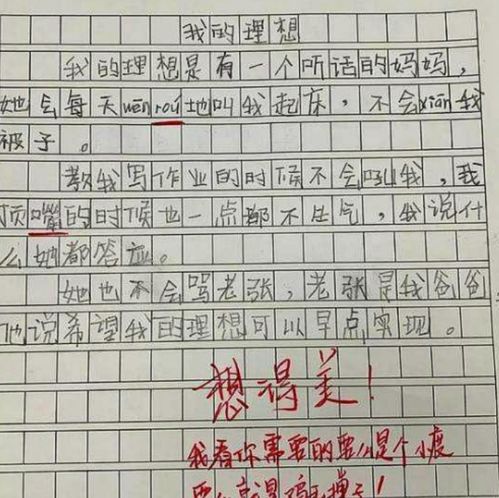 我的理想
我的理想是有一个听话的妈妈，
她会每天wēn róu地叫我起床，不会xiān我
被子。
教我写作业的时候不会吼我，我
顶嘴的时候也一点都不生气，我说什
么她都答应。
她也不会骂老张，老张是我爸爸，
他说希望我的理想可以早点实现。
想得美！
我看你需要的要么是个小度
要么就是鸡毛掸子！